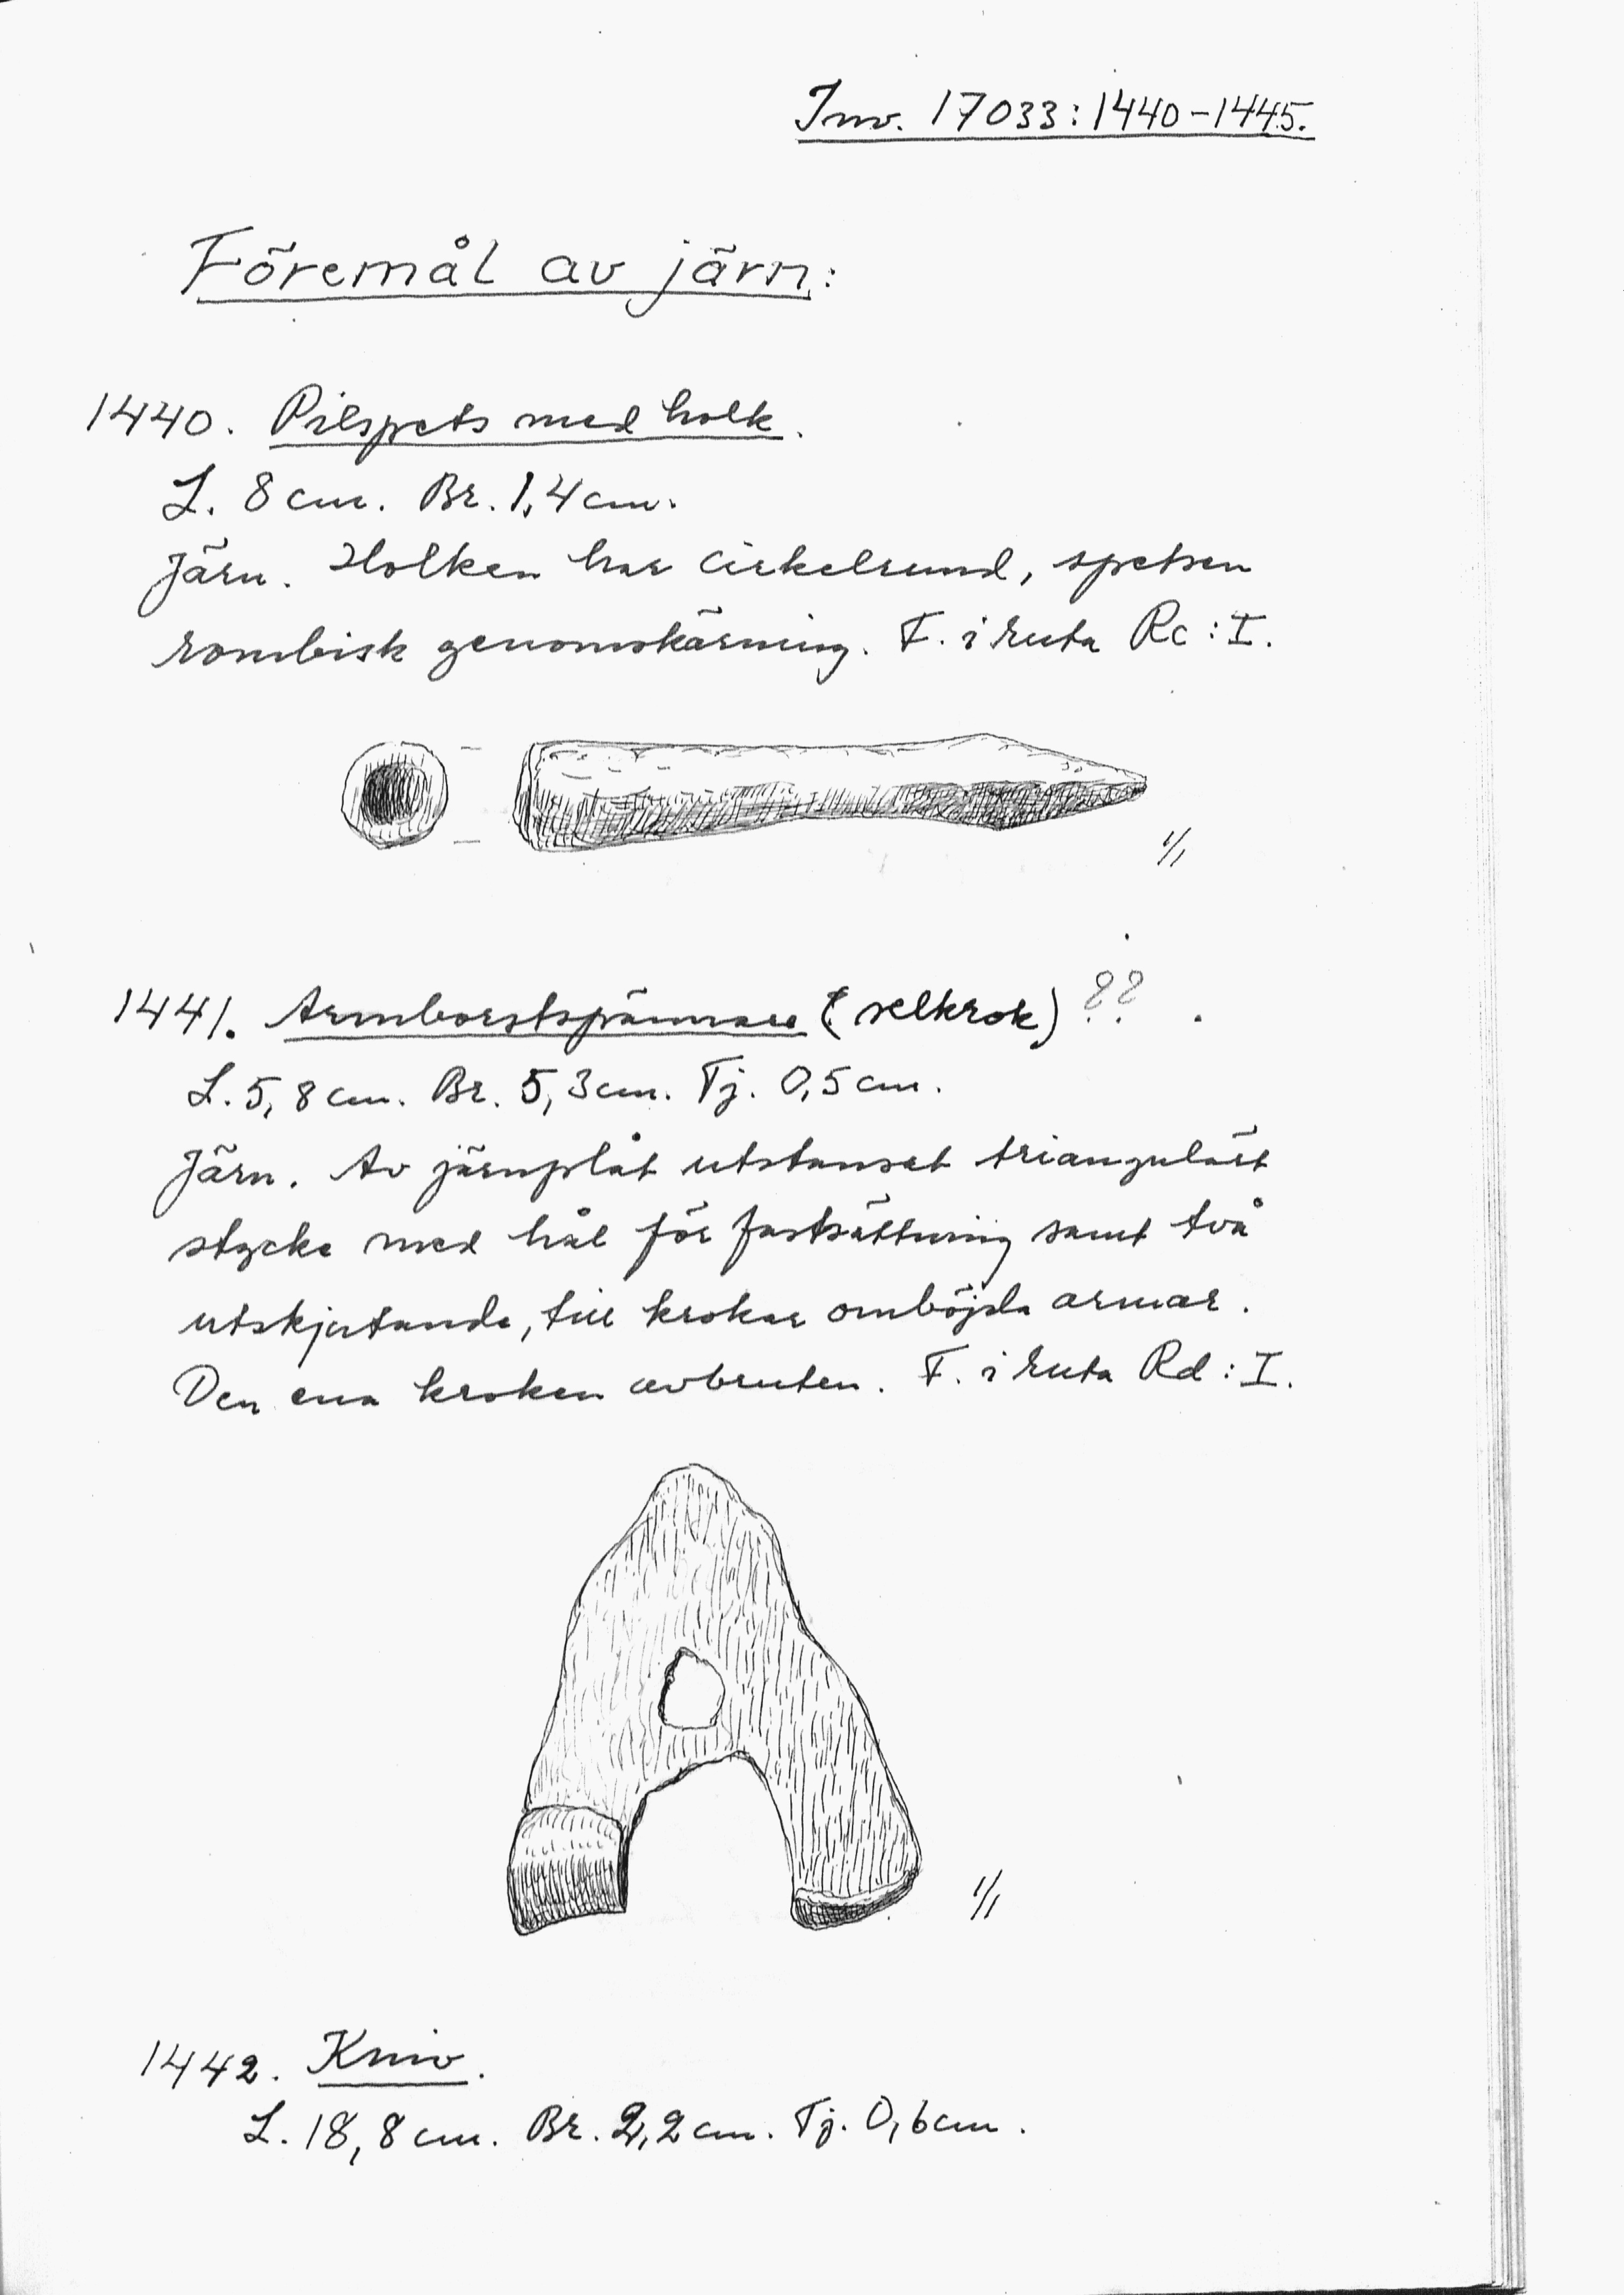 Inv. 17033:1440-1445.
Föremål av järn:
1440. Pilspets med holk.
L. 8 cm. Br. 1,4 cm.
Järn. Holken har cirkelrund, spetsen
rombisk genomskärning. F. i ruta Rc:I.
1/1
1441. Armborstspännare (selkrok) ??
L. 5,8 cm. Br. 5,3 cm. Tj. 0,5 cm.
Järn. Av järnplåt utstansat triangulärt
stycke med hål för fastsättning samt två
utskjutande, till krokar omböjda armar.
Den ena kroken avbruten. F. i ruta Rd:I.
1/1
1442. Kniv.
L. 18,8 cm. Br. 2,2 cm. Tj. 0,6 cm.